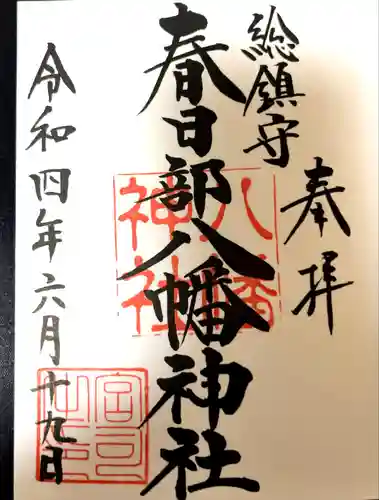 奉拝
総鎮守
春日部八幡神社
八幡神社
令和四年六月十九日
宮司之印